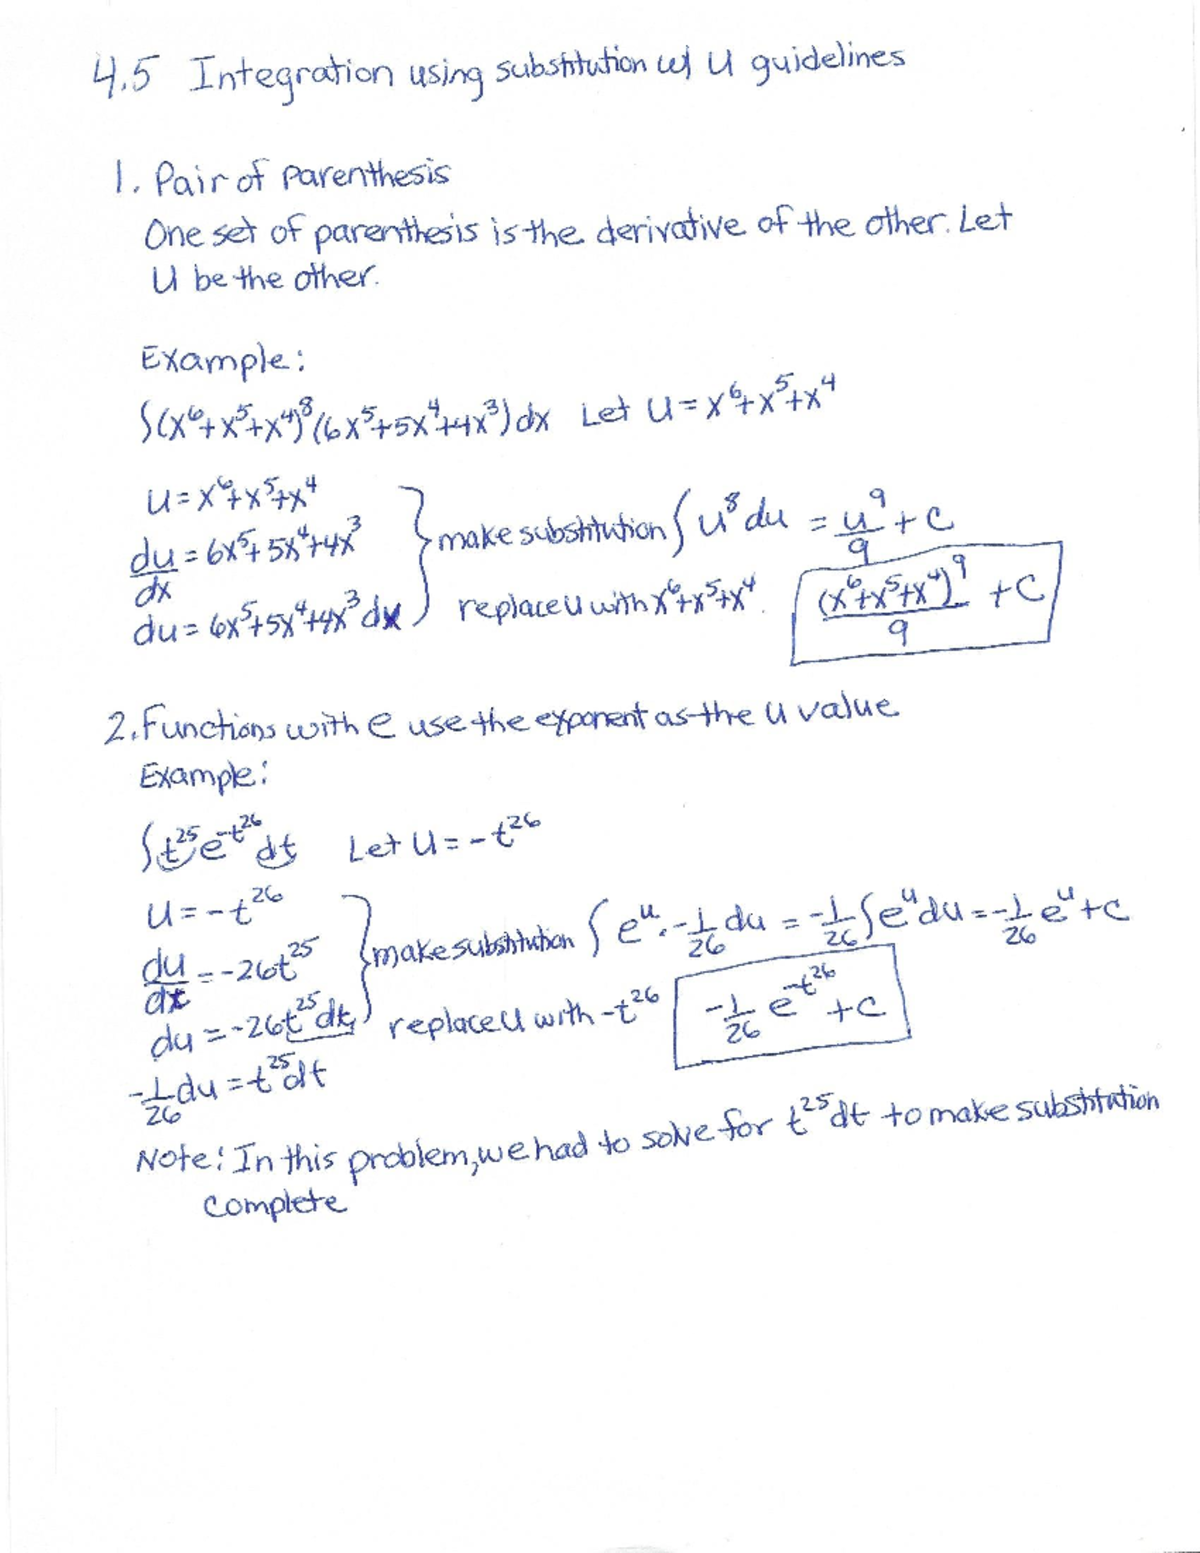 4.5 Integration using substitution w/ U guidelines
1. Pair of Parenthesis
One set of parenthesis is the derivative of the other. Let
U be the other.
Example:
∫(x⁶+x⁵+x⁴)⁸(6x⁵+5x⁴+4x³)dx Let U=x⁶+x⁵+x⁴
U=x⁶+x⁵+x⁴
du/dx = 6x⁵+5x⁴+4x³ } make substitution ∫u⁸ du = u⁹/9 + C
du = 6x⁵+5x⁴+4x³ dx replace U with x⁶+x⁵+x⁴. (x⁶+x⁵+x⁴)⁹/9 + C
2. Functions with e use the exponent as the U value
Example:
∫t²⁵e^-t²⁶ dt Let U = -t²⁶
U = -t²⁶
du/dt = -26t²⁵ } make substitution ∫e^u · -1/26 du = -1/26 ∫e^u du = -1/26 e^u + C
du = -26t²⁵dt replace U with -t²⁶ -1/26 e^-t²⁶ + C
-1/26 du = t²⁵dt
Note: In this problem, we had to solve for t²⁵dt to make substitution
complete